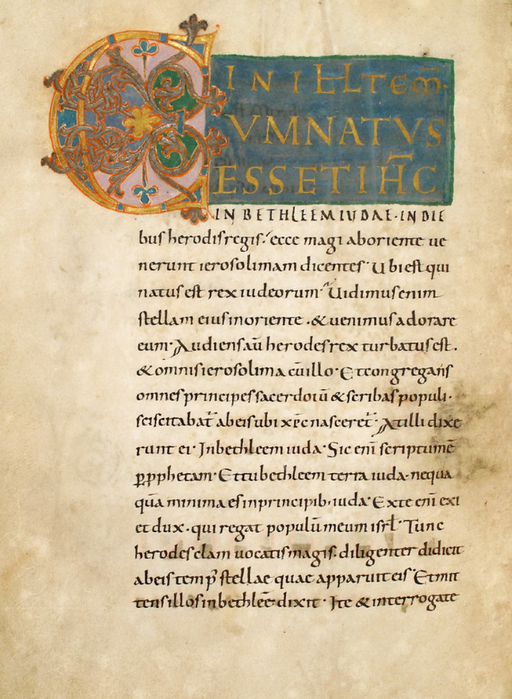 IN ILL TEM̅.
CUM NATUS
ESSET IH̅C
IN BETHLEEM IUDAE · IN DIE
bus herodis regis · ecce magi ab oriente ue
nerunt ierosolimam dicentes · Ubi est qui
natus est rex iudeorum · Uidimus enim
stellam eius in oriente · & uenimus adorare
eum · Audiens au̅ herodes rex turbatus est ·
& omnis ierosolima cu̅ illo · Et congregans
omnes principes sacerdotu̅ & scribas populi ·
sciscitabat̅ ab eis ubi xp̅c nasceret̅ · At illi dixe
runt ei · In bethleem iuda · Sic eni̅ scriptum e̅
p̲ p̲phetam · Et tu bethleem terra iuda · nequa
qua̅ minima es in principib · iuda · Ex te eni̅ exi
et dux · qui regat populu̅ meum isrl̅ · Tunc
herodes clam uocatis magis · diligenter didicit
ab eis temp̅ stellae quae apparuit eis · Et mit
tens illos in bethlee̅ · dixit · Ite & interrogate